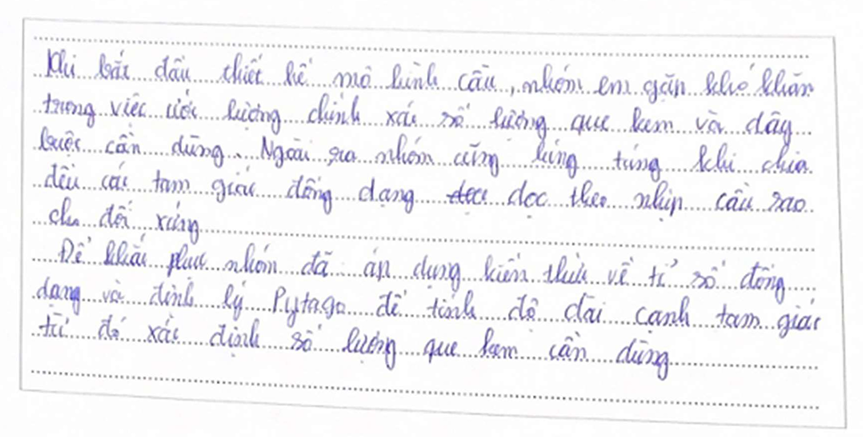 Khi bắt đầu thiết kế mô hình cầu, nhóm em gặp khó khăn
trong việc ước lượng chính xác số lượng que kem và dây
buộc cần dùng. Ngoài ra nhóm cũng lúng túng khi chia
đều các tam giác đồng dạng dọc theo nhịp cầu sao
cho đối xứng
Để khắc phục nhóm đã áp dụng kiến thức về tỉ số đồng
dạng và định lý Pytago để tính độ dài cạnh tam giác
từ đó xác định số lượng que kem cần dùng